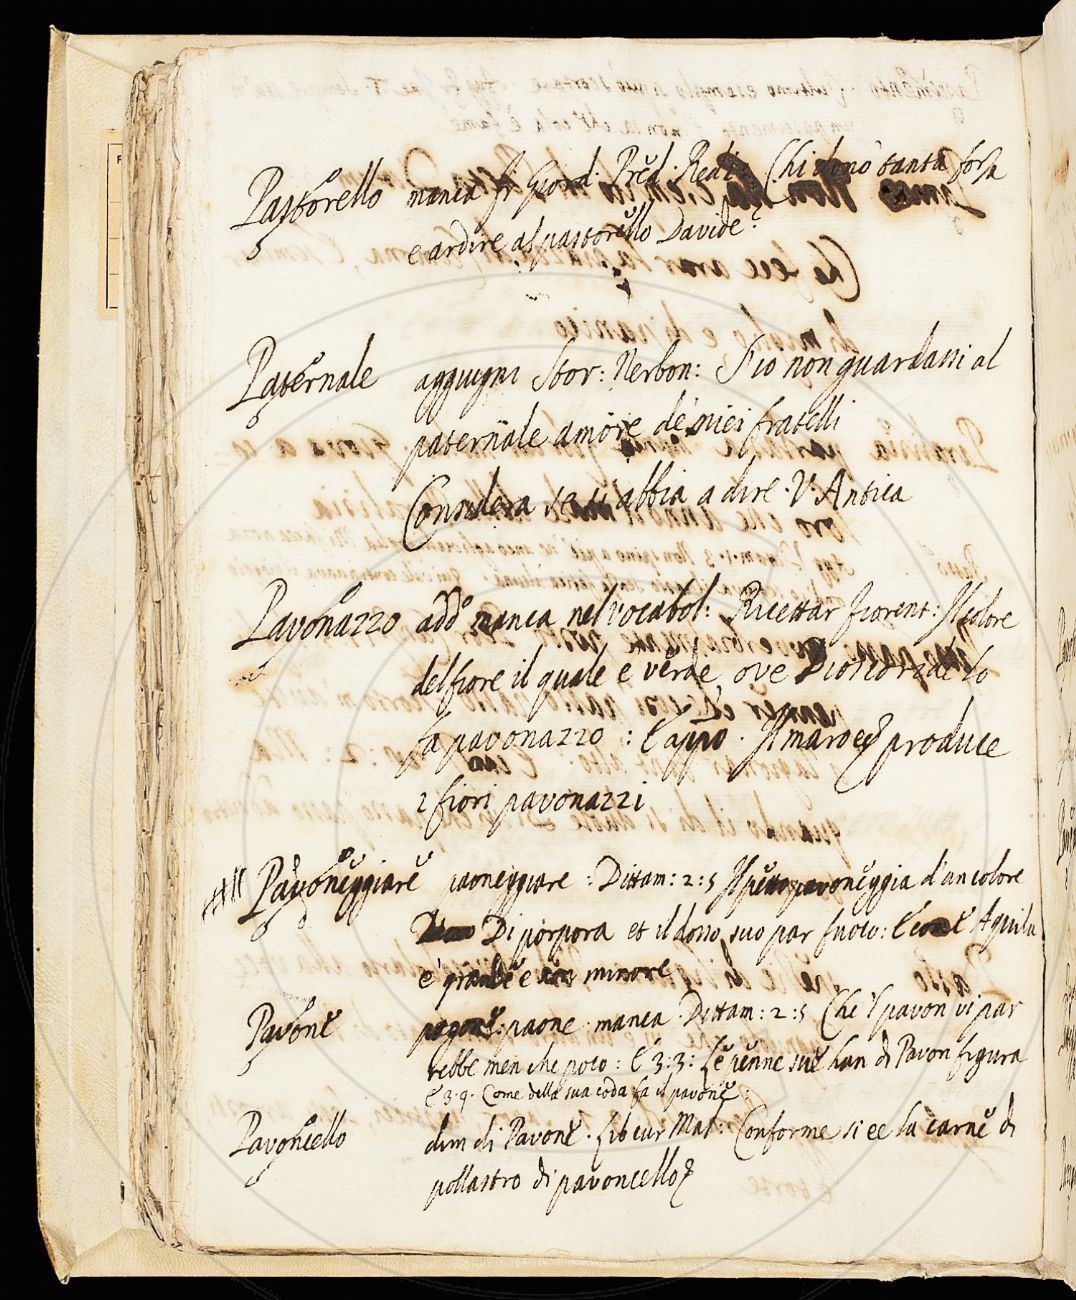 Pastorello manca fr Giord: Pred. Redi Chi donò tanta forza
e ardire al pastorello Davide?
Paternale aggiugni Stor: Nerbon: S'io non guardassi al
paternale amore de' miei fratelli
Considera se ti abbia a dire. V. Antica
Pavonazzo add.º manca nel vocabol: Ricettar fiorent: Il colore
del fiore il quale è verde, ove Dioscoride lo
fa pavonazzo: E appº. Il maro produce
i fiori pavonazzi
Pavoneggiare paoneggiare: Dittam: 2:5 Il petto pavoneggia d'un colore
Di porpora et il dosso suo par fuoco: E come Aquila
è grande e non minore
Pavone paone manca. Dittam: 2:5 Che 'l pavon vi par
rebbe men che poco: E 3:3: Le penne sue han di Pavon figura
E 3.9. Come della sua coda fa il pavone.
Pavoncello dim di Pavone. Lib cur Mal: Conforme si ee la carne di
pollastro di pavoncello